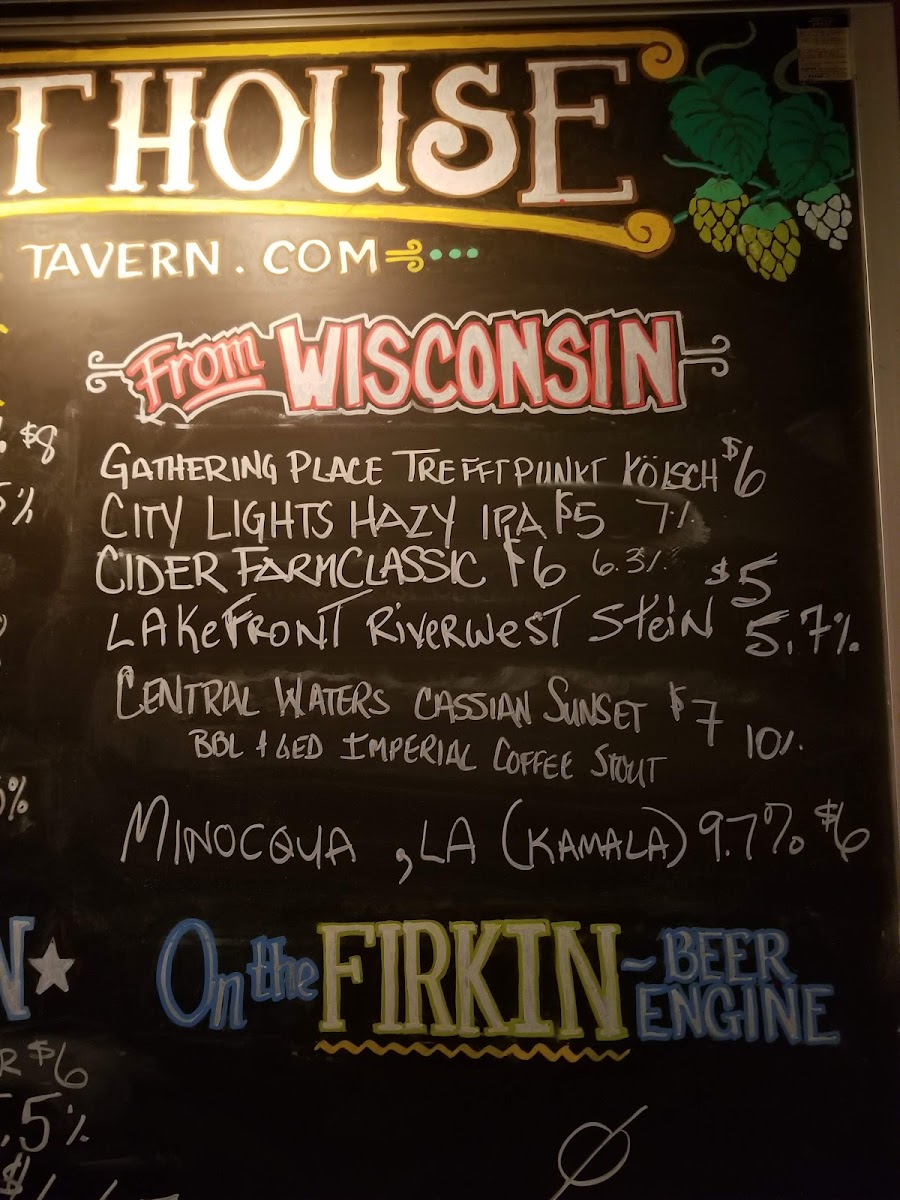 T HOUSE
TAVERN.COM
From WISCONSIN
% $8
5%
GATHERING PLACE TREFFTPUNKT KÖLSCH $6
CITY LIGHTS HAZY IPA $5 7%
CIDER FARM CLASSIC $6 6.3%
$5
LAKEFRONT RIVERWEST STEIN 5.7%
CENTRAL WATERS CASSIAN SUNSET $7
BBL AGED IMPERIAL COFFEE STOUT 10%
%
MINOCQUA , LA (KAMALA) 9.7% $6
N
On the FIRKIN ~ BEER
ENGINE
R $6
.5%
$
Ø